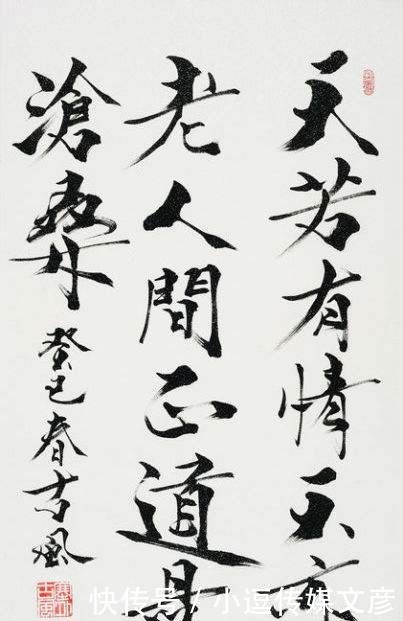 天若有情天亦
老人間正道是
滄桑
癸巳春古風
快传号 / 小逗传媒文彦